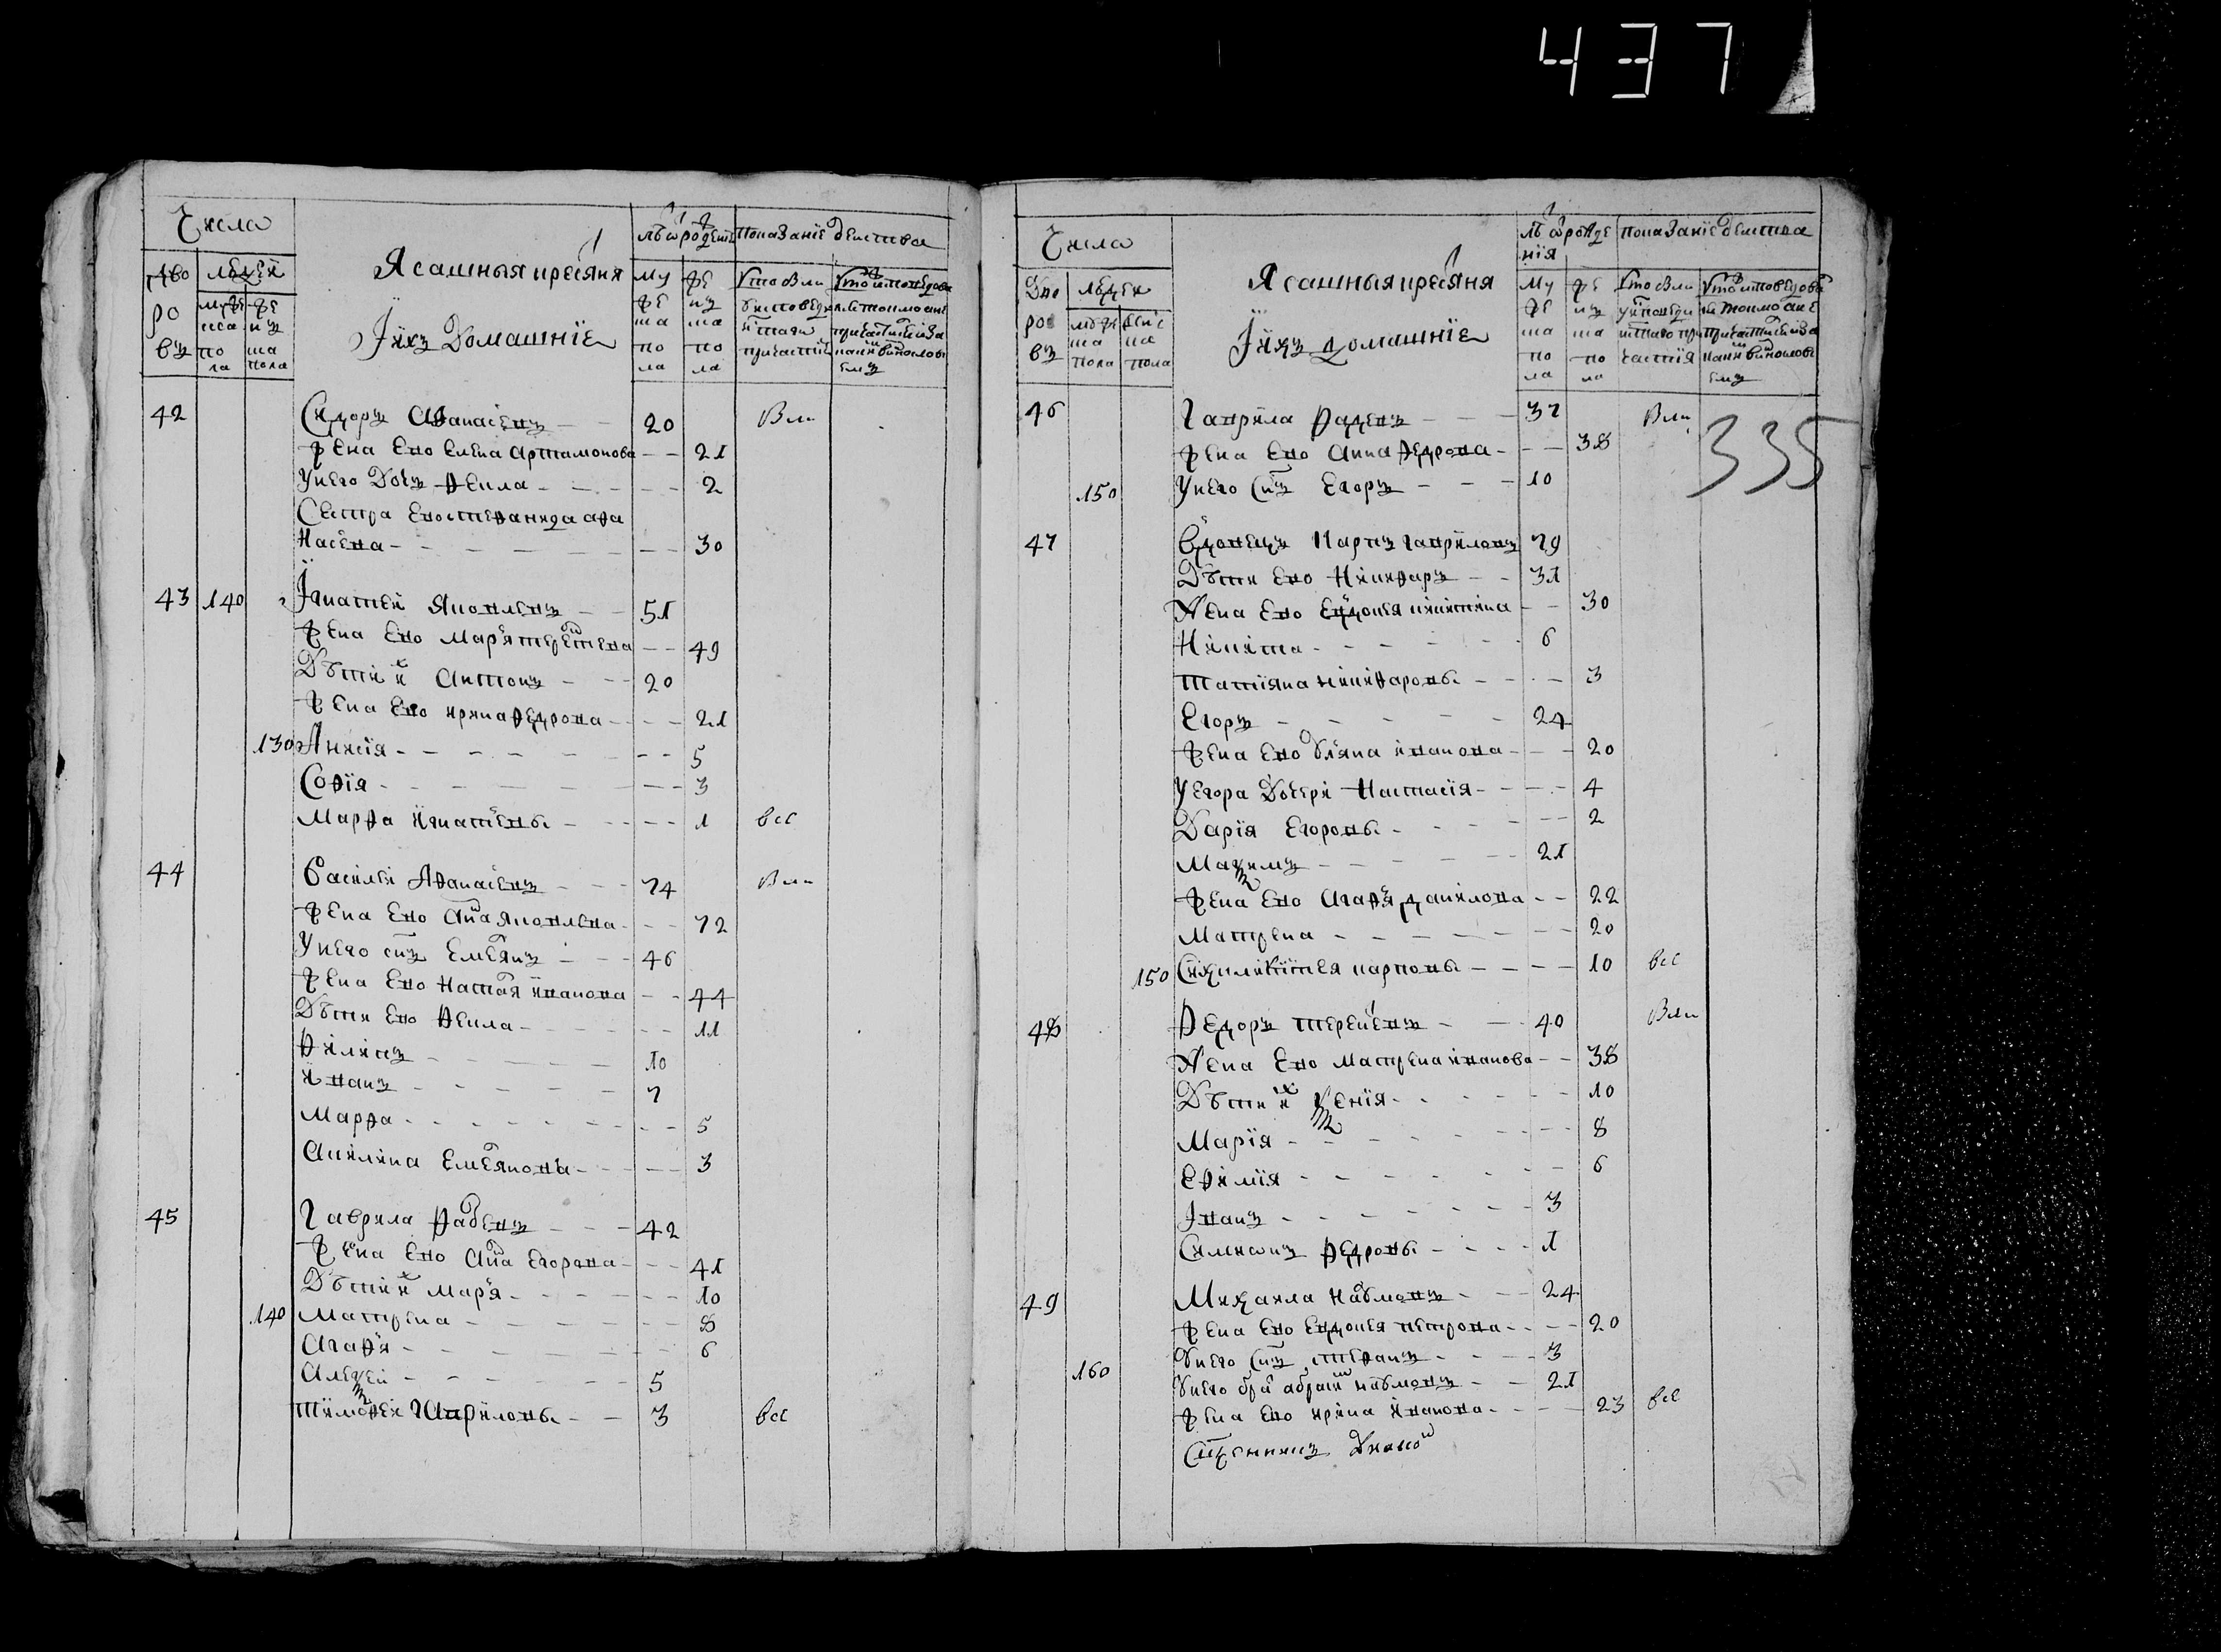 437
Числа
Дво
ро
въ
людей
мужеска пола
женска пола
Ясашныя крестьяня
Їихъ Домашнїе
лѣта ѿ рожденїя
Мужеска пола
женска пола
показанїе действа
Кто были
42 Сидоръ Афанасьевъ 20 Были
жена ево Елена Артамонова 21
У него дочь Фекла 2
Сестра ево Степанида Афа
насьева 30
43 140 Їгнатей Яковлевъ 51
жена ево Марья терентьева 49
Дѣти их Антонъ 20
жена ево ирина Федрова 21
130 Анисїя 5
Софїя 3
Марфа игнатьевы 1 все
44 Василеи Афанасьевъ 74 Были
жена ево Анна Яковлева 72
У него снъ Емельянъ 46
жена ево Настася иванова 44
Дѣти ево Фекла 11
Филипъ 10
Иванъ 7
Марфа 5
Акилина Емельяновы 3
45 Гаврила Фадеевъ 42
жена ево Анна Егорова 41
Дѣти их Марья 10
140 Матрена 8
Агафья 6
Алексей 5
Тимофеи Гавриловы 3 все
Числа
Дво
ро
въ
людей
Ясашныя крестьяня
Їихъ домашнїе
лѣта ѿ рожде
нїя
показанїе действа
335
46 Гаврила Фадеевъ 37 Были
жена ево Анна Федрова 38
150 У него снъ Егоръ 10
47 Вдовецъ Карпъ Гавриловъ 79
Дѣти ево Никифаръ 31
Жена ево Евдокея никитина 30
Никита 6
Татїяна никифаровы 3
Егоръ 24
жена ево Ульяна иванова 20
У Егора дочери Настасїя 4
Дарїя Егоровы 2
Максимъ 21
жена ево Агафья данилова 22
Матрена 20
150 карповы 10 все
48 Федоръ терентьевъ 40 Были
Жена ево Матрена иванова 38
Дѣти их Ксенїя 10
Марїя 8
Ефимїя 6
Їванъ 3
Симионъ Федровы 1
49 Михаила Наумовъ 24
жена ево Евдокея петрова 20
160 У него снъ Стефанъ 3
У него братъ абрам наумовъ 21
жена ево ирина Иванова 23 все
Сщенникъ